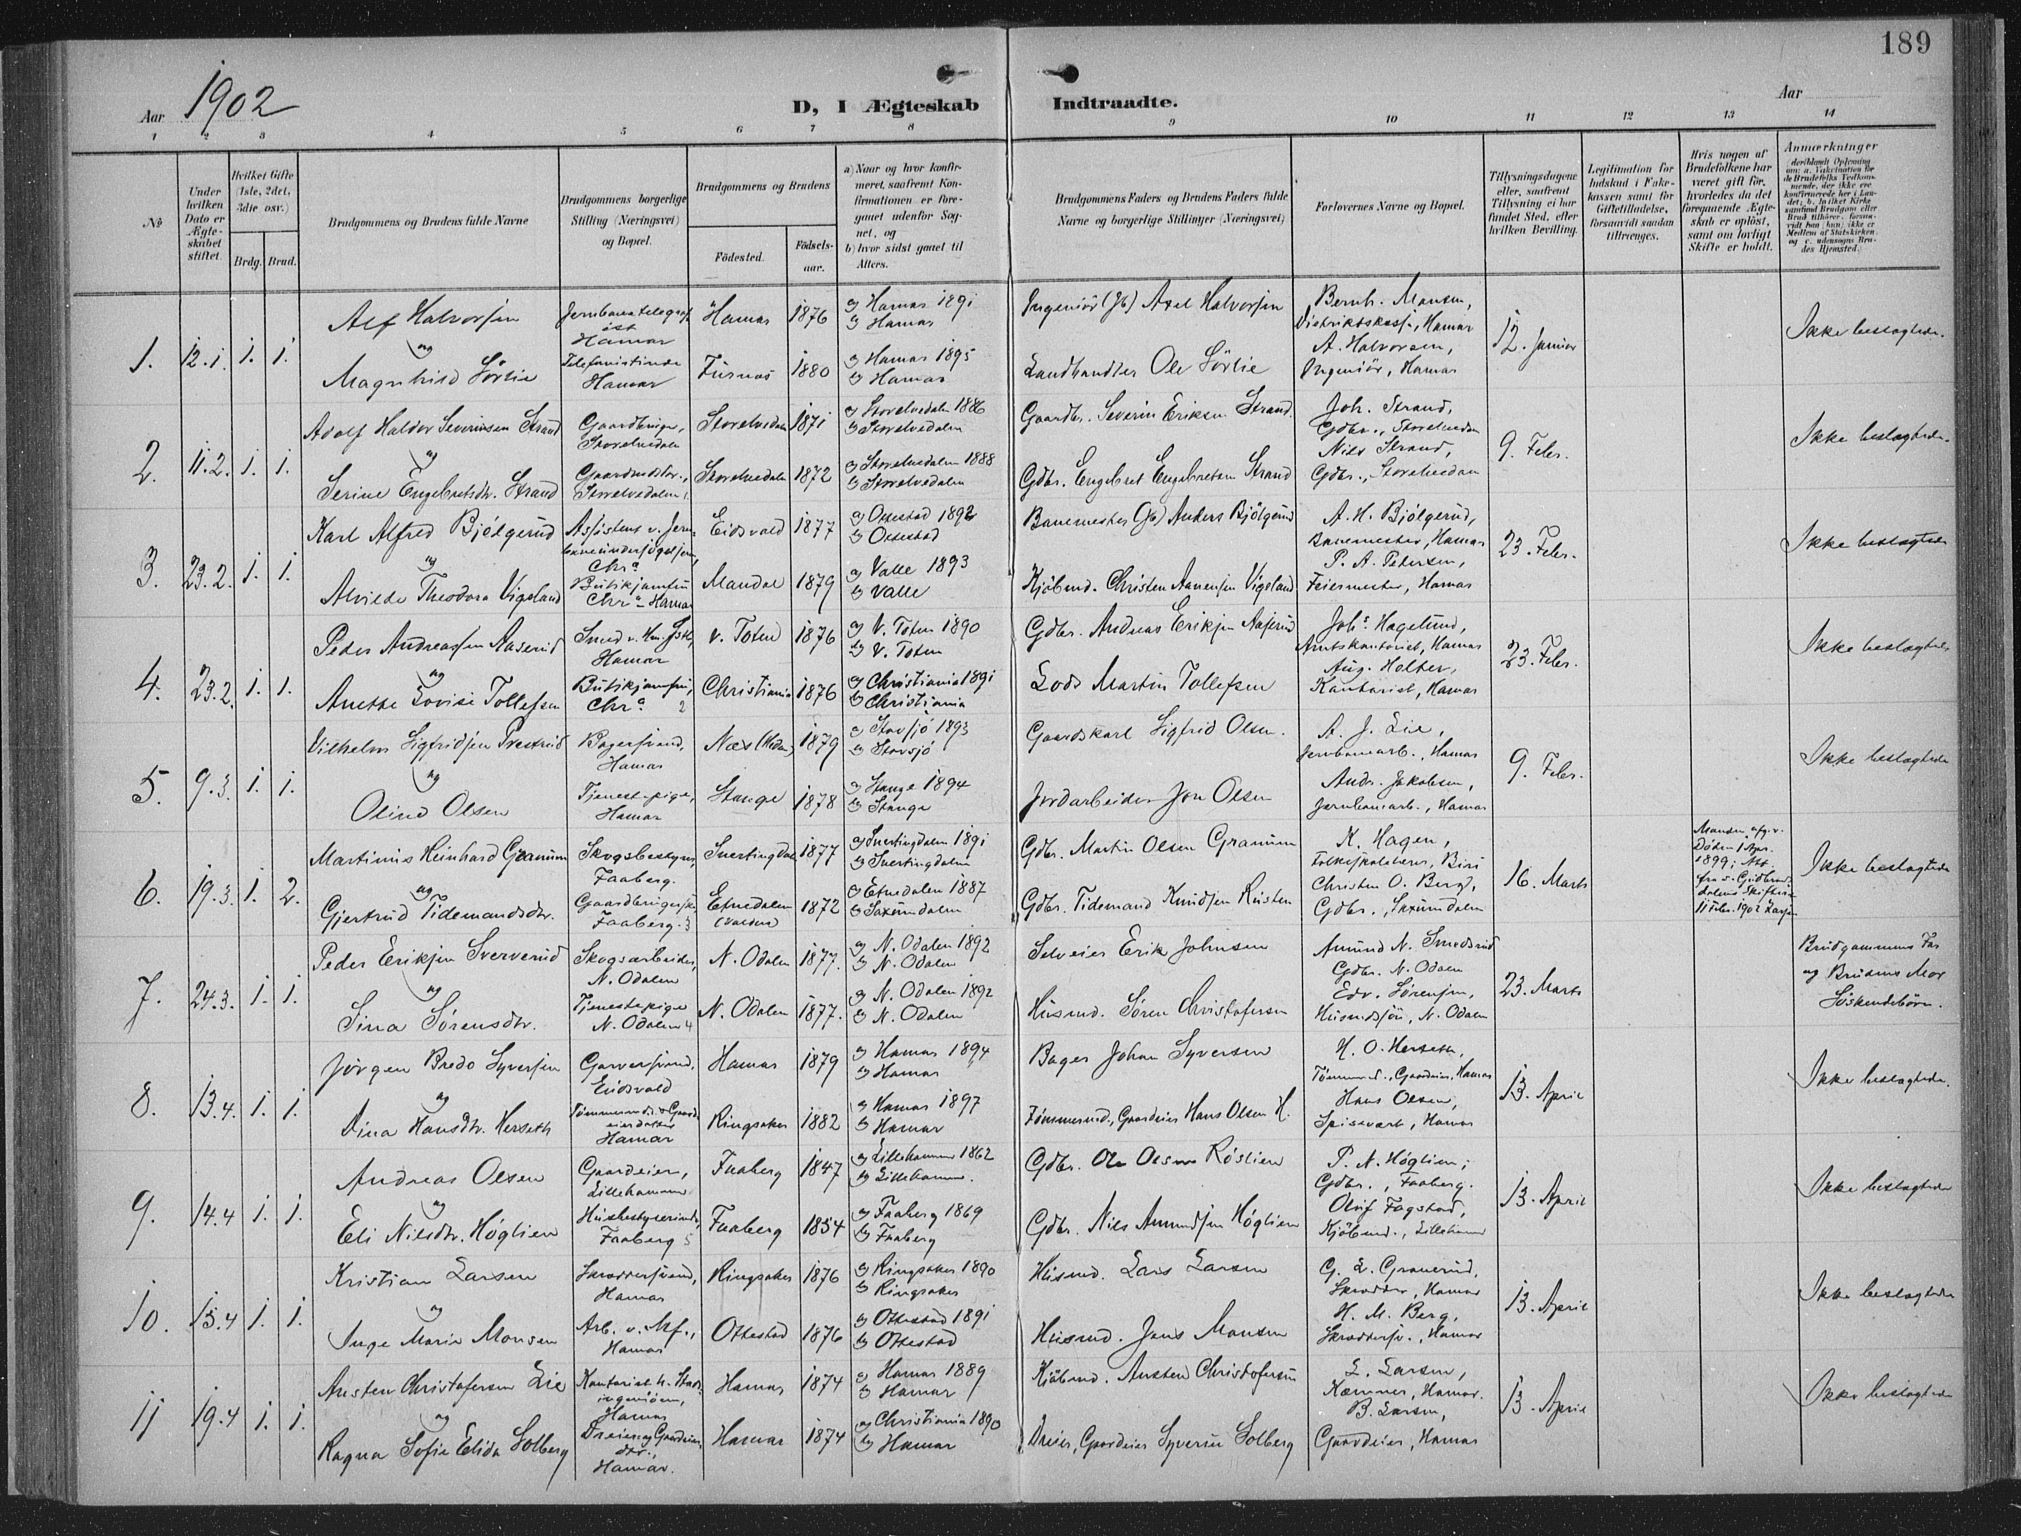 189
Aar 1902
D, I Ægteskab Indtraadte.
Aar
1 2 3 4 5 6 7 8 9 10 11 12 13 14
No
Under hvilken Dato er Ægteskabet stiftet.
Hvilket Gifte (1ste, 2det, 3die osv.)
Brdg. Brud.
Brudgommens og Brudens fulde Navne
Brudgommens borgerlige Stilling (Næringsvei) og Bopæl.
Brudgommens og Brudens
Födested.
Födselsaar.
a) Naar og hvor konfirmeret, saafremt Konfirmationen er foregaaet udenfor Sognet, og
b) hvor sidst gaaet til Alters.
Brudgommens Faders og Brudens Faders fulde Navne og borgerlige Stillinger (Næringsvei)
Forlovernes Navne og Bopæl.
Tillysningsdagene eller, saafremt Tillysning ei har fundet Sted, efter hvilken Bevilling.
Legitimation for Indskud i Enkekassen samt for Giftetilladelse, forsaavidt saadan tiltrænges.
Hvis nogen af Brudefolkene har været gift før, hvorledes da det foregaaende Ægteskab er opløst, samt om lovligt Skifte er holdt.
Anmærkninger
1. 12.1. 1. 1.
Alf Halvorsen
Jernbanetelegrafist Hamar
Hamar 1876
a) Hamar 1891
b) Hamar
Ingeniør (Jb) Axel Halvorsen
Bernh. Mansen, Distriktskass., Hamar
A. Halvorsen, Ingeniør, Hamar
12. Januar
Ikke beslægtede.
og
Magnhild Sørlie
Telefonistinde Hamar
Furnes 1880
a) Hamar 1895
b) Hamar
Landhandler Ole Sørlie
2. 11.2. 1. 1.
Adolf Haldor Severinsen Strand
Gaardbruger, Storelvedalen
Storelvedalen 1871
a) Storelvedalen 1886
b) Storelvedalen
Gaardbr. Severin Eriksen Strand.
Joh. Strand, Gdbr., Storelvedalen
Nils Strand, Gdbr., Storelvedalen
9. Febr.
Ikke beslægtede.
og
Serine Engebretsdtr. Strand
Storelvedalen
Storelvedalen 1872
a) Storelvedalen 1888
b) Storelvedalen
Gdbr. Engebret Engebretsen Strand
3. 23.2. 1. 1.
Karl Alfred Bjølgerud
Assistent v. Jernbaneundersøgelsen, Chra
Eidsvold 1877
a) Ottestad 1892
b) Ottestad
Banemester (Jb) Anders Bjølgerud
A. H. Bjølgerud, Banemester, Hamar
P. A. Petersen, Feiermester, Hamar
23. Febr.
Ikke beslægtede
og
Alvilde Theodora Vigeland
Butikjomfru Chra - Hamar
Mandal 1879
a) Valle 1893
b) Valle
Kjøbmd. Christen Aanensen Vigeland
4. 23.2. 1. 1.
Peder Andreassen Aaserud
Hamar
V. Toten 1876
a) V. Toten 1890
b) V. Toten
Gdbr. Andreas Eriksen Aaserud
Johs. Hagelund, Amtskontorist, Hamar
Aug. Holter, Kontorist, Hamar
23. Febr.
Ikke beslægtede
og
Anette Lovise Tollefsen
Butikjomfru, Chra 2
Christiania 1876
a) Christiania 1891
b) Christiania
Lods Martin Tollefsen
5. 9.3. 1. 1.
Vilhelm Sigfridsen Prestrud
Bagersvend, Hamar
Næs (Hedm.) 1879
a) Stavsjø 1893
b) Stavsjø
Gaardskarl Sigfrid Olsen.
A. J. Lie, Jernbanearb., Hamar
Andr. Jakobsen, Jernbanearb., Hamar
9. Febr.
Ikke beslægtede
og
Oline Olsen
Tjenestepige, Hamar
Stange 1878
a) Stange 1894
b) Stange
Jordarbeider Jon Olsen
6. 19.3. 1. 2.
Martinus Meinhard Granum
Skogsbestyrer, Faaberg.
Snertingdal 1877
a) Snertingdalen 1891
b) Snertingdalen
Gdbr. Martin Olsen Granum
K. Hagen, Folkeskolelærer, Biri
Christen O. Berg, Gdbr., Saxumdalen
16. Marts
Ikke beslægtede
og
Gjertrud Tidemandsdtr.
Faaberg. 3
Etnedalen (Valdres) 1872
a) Etnedalen 1887
b) Saxumdalen
Gdbr. Tidemand Knudsen Rusten
7. 24.3. 1. 1.
Peder Eriksen Sververud
Skogsarbeider, N. Odalen
N. Odalen 1877.
a) N. Odalen 1892
b) N. Odalen
Selveier Erik Johnsen
Amund N. Smedsrud Gdbr. N. Odalen
Edv. Sørensen, Husmdssøn, N. Odalen
23. Marts
Brudgommens Far og Brudens Mor Søskendebørn.
og
Sina Sørensdtr.
Tjenestepige N. Odalen 4
N. Odalen 1877.
a) N. Odalen 1892
b) N. Odalen
Husmd. Søren Christofersen
8. 13.4. 1. 1.
Jørgen Bredo Syversen
Garversvend, Eidsvold
Hamar 1879
a) Hamar 1894
b) Hamar
Bager Johan Syversen
H. O. Herseth, Tømmermd., Gaardeier, Hamar
Hans Olsen, Spisevært, Hamar
13. April
Ikke beslægtede.
og
Dina Hansdtr. Herseth
Tømmermds. & Gaardeierdatter Hamar
Ringsaker 1882
a) Hamar 1897
b) Hamar
Tømmermd., Gaardeier Hans Olsen H.
9. 14.4 1. 1.
Andreas Olsen
Gaardeier, Lillehammer
Faaberg 1847
a) Lillehammer 1862
b) Lillehammer.
Gdbr. Ole Olsen Røslien
P. N. Høglien, Gdbr., Faaberg.
Oluf Fagstad, Kjøbmd., Lillehammer
13. April
Ikke beslægtede
og
Eli Nilsdtr. Høglien
Husbestyrerinde, Faaberg 5
Faaberg 1854
a) Faaberg 1869
b) Faaberg
Gdbr. Nils Amundsen Høglien
10. 15.4 1. 1.
Kristian Larsen
Skræddersvend, Hamar
Ringsaker 1876
a) Ringsaker 1890
b) Ringsaker
Husmd. Lars Larsen
G. L. Granerud, Skrædder, Hamar
H. M. Berg, Skræddersv., Hamar
13. April
Ikke beslægtede
og
Inge Marie Monsen
Arb. v. Mf., Hamar
Ottestad 1876
a) Ottestad 1891
b) Ottestad
Husmd. Jens Monsen
11 19.4 1. 1.
Austen Christofersen Lie
Kontorist h. Stadsingeniøren, Hamar
Hamar 1874
a) Hamar 1889
b) Hamar
Kjøbmd. Austen Christofersen
L. Larsen, Kæmner, Hamar.
B. Larsen, Gaardeier, Hamar
13. April
Ikke beslægtede
og
Ragna Sofie Elida Solberg
Hamar.
Hamar 1874
a) Christiania 1890
b) Hamar
Dreier, Gaardeier Syverin Solberg